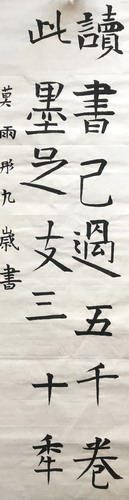 讀書已過五千卷
此墨足支三十年
莫雨彤九歲書